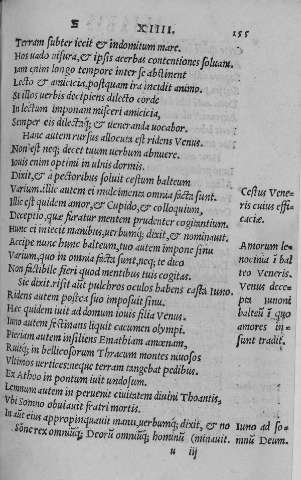 Ξ
XIIII.
155
Terram subter iecit & indomitum mare.
Hos uado uisura, & ipsis acerbas contentiones soluam.
Iam enim longo tempore inter se abstinent
Lecto & amicicia, postquam ira incidit animo.
Si illos uerbis decipiens dilecto corde
In lectum imponam misceri amicicia,
Semper eis dilectaq́; & ueneranda uocabor.
Hanc autem rursus allocuta est ridens Venus.
Non est neq; decet tuum uerbum abnuere.
Iouis enim optimi in ulnis dormis.
Dixit, & à pectoribus soluit cestum balteum
Varium. illic autem ei mulcimenta omnia facta sunt.
Illic est quidem amor, & Cupido, & colloquium,
Deceptio, quæ furatur mentem prudenter cogitantium.
Hunc ei iniecit manibus, uerbumq; dixit, & nominauit.
Accipe nunc hunc balteum, tuo autem impone sinu
Varium, quo in omnia facta sunt, neq; te dico
Non factibile fieri quod mentibus tuis cogitas.
Sic dixit. risit aūt pulchros oculos habens casta Iuno.
Ridens autem postea suo imposuit sinu.
Hæc quidem iuit ad domum iouis filia Venus.
Iuno autem festinans liquit cacumen olympi.
Pieriam autem insiliens Emathiam amœnam,
Ruitq; in bellicosorum Thracum montes niuosos
Vltimos uertices: neque terram tangebat pedibus.
Ex Athoo in pontum iuit undosum.
Lemnum autem in peruenit ciuitatem diuini Thoantis,
Vbi Somno obuiauit fratri mortis.
In aūt eius appropinquauit manu, uerbumq; dixit, & no
Sōne rex omniūq; Deorū omniūq; hominū (minauit.
u iij
Cestus Vene
ris cuius effi
caciæ.
Amorum le
nocinia ī bal
teo Veneris.
Venus dece-
pta iunoni
balteū ī quo
amores in-
sunt tradit.
Iuno ad so-
mnū Deum.